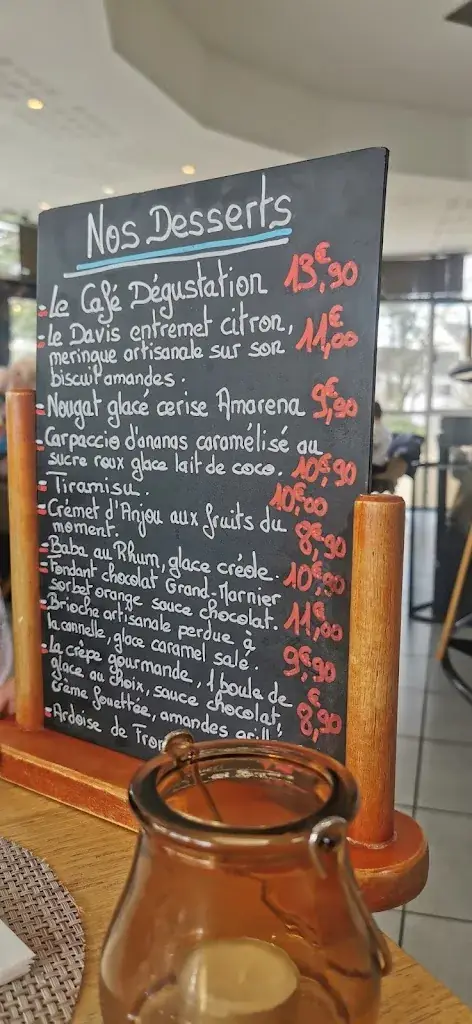 Nos Desserts
- Le Café Dégustation 13€,90
- Le Davis entremet citron, 11€,00
meringue artisanale sur son
biscuit amandes.
- Nougat glacé cerise Amarena 9€,90
- Carpaccio d'ananas caramélisé au
sucre roux glace lait de coco. 10€,90
- Tiramisu. 10€,00
- Crèmet d'Anjou aux fruits du
moment. 8€,90
- Baba au Rhum, glace créole. 10€,90
- Fondant chocolat Grand-Marnier
sorbet orange sauce chocolat. 11€,00
- Brioche artisanale perdue à
la cannelle, glace caramel salé. 9€,90
- La crèpe gourmande, 1 boule de
glace au choix, sauce chocolat, 8€,90
Crème fouettée, amandes
- Ardoise de